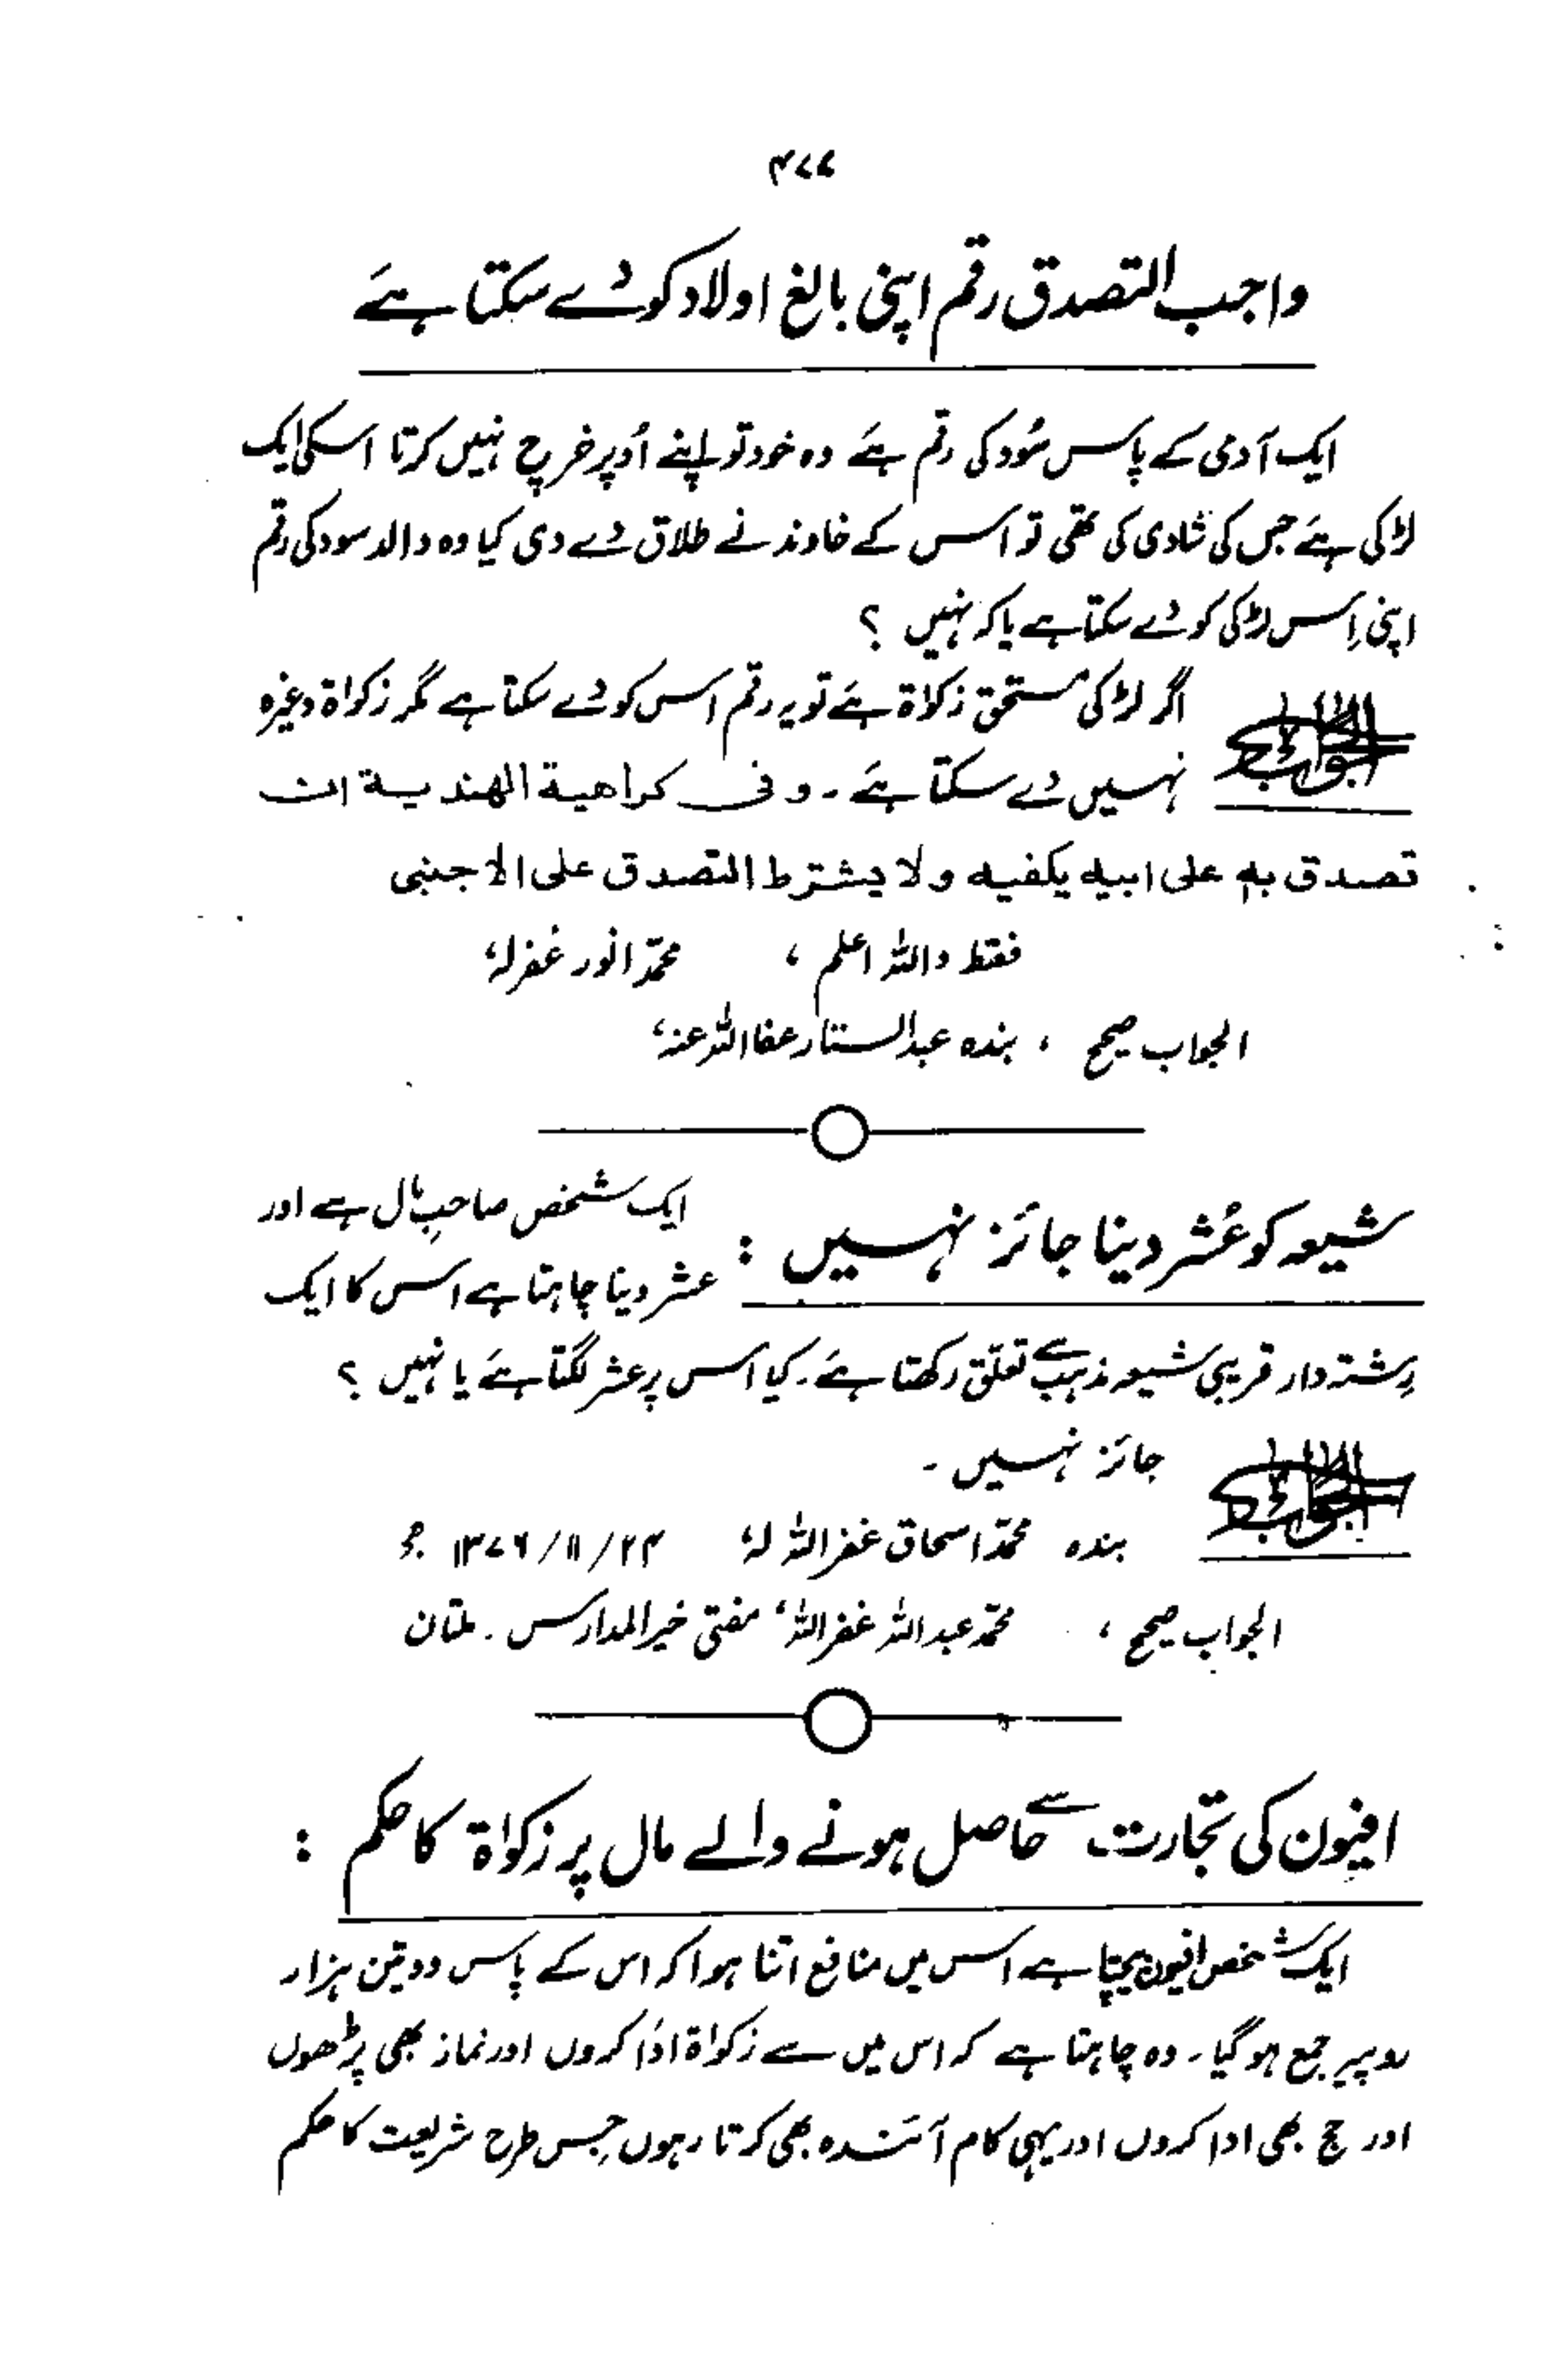 ۴۷۷
واجب التصدق رقم اپنی بالغ اولاد کو دے سکتا ہے
ایک آدمی کے پاس سُود کی رقم ہے وہ خود تو اپنے اُوپر خرچ نہیں کرتا اسکی ایک
لڑکی ہے جس کی شادی کی تھی تو اس کے خاوند نے طلاق دے دی کیا وہ والد سود کی رقم
اپنی اِس لڑکی کو دے سکتا ہے یا کہ نہیں ؟
الجواب اگر لڑکی مستحق زکوٰۃ ہے تو یہ رقم اس کو دے سکتا ہے مگر زکوٰۃ وغیرہ
نہیں دے سکتا ہے ۔ وفی کراھیۃ الھندیۃ ان
تصدق بہ علی ابیہ یکفیہ ولا یشترط التصدق علی الاجنبی
فقط واللہ اعلم ، محمّد انور غفرلہٗ
الجواب صحیح ، بندہ عبدالستار عفا اللہ عنہٗ
شیعہ کو عُشر دینا جائز نہیں : ایک شخص صاحبِ مال ہے اور
عشر دینا چاہتا ہے اس کا ایک
رِشتہ دار قریبی شیعہ مذہب سے تعلّق رکھتا ہے۔ کیا اس پر عشر لگتا ہے یا نہیں ؟
الجواب جائز نہیں ۔
بندہ محمّد اسحاق غفر اللہ لہٗ ۲۴/۱۱/۱۳۷۶ ھ
الجواب صحیح ، محمّد عبد اللہ غفر اللہ لہٗ مفتی خیر المدارس ۔ ملتان
افیون کی تجارت سے حاصل ہونے والے مال پر زکوٰۃ کا حکم :
ایک شخص افیون بیچتا ہے اس میں منافع اتنا ہوا کہ اس کے پاس دو تین ہزار
روپیہ جمع ہو گیا۔ وہ چاہتا ہے کہ اس میں سے زکوٰۃ ادا کروں اور نماز بھی پڑھوں
اور حج بھی ادا کروں اور یہی کام آئندہ بھی کرتا رہوں جِس طرح شریعت کا حکم